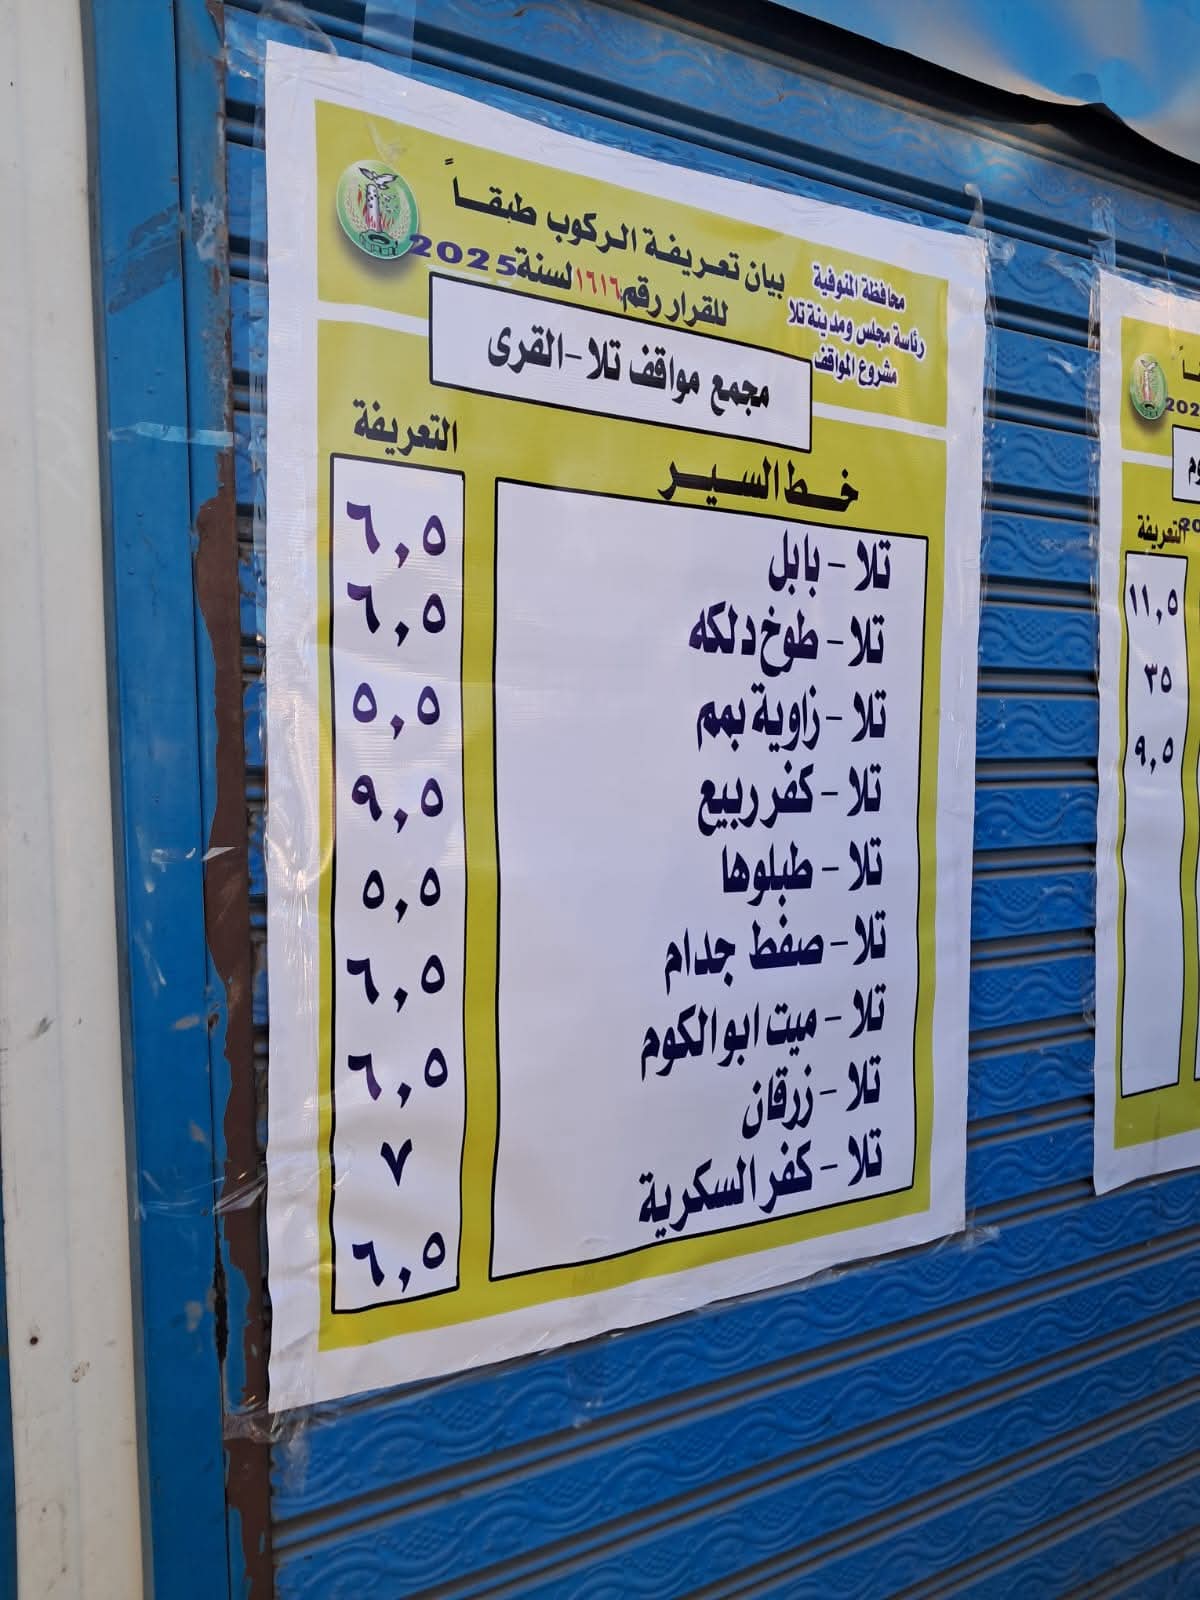 محافظة المنوفية
رئاسة مجلس ومدينة تلا
مشروع المواقف
بيان تعريفة الركوب طبقاً
للقرار رقم ١٦١٦ لسنة 2025
مجمع مواقف تلا - القرى
خط السير التعريفة
تلا - بابل ٦,٥
تلا - طوخ دلكه ٦,٥
تلا - زاوية بمم ٥,٥
تلا - كفر ربيع ٩,٥
تلا - طبلوها ٥,٥
تلا - صفط جدام ٦,٥
تلا - ميت ابو الكوم ٦,٥
تلا - زرقان ٧
تلا - كفر السكرية ٦,٥
التعريفة
١١,٥
٣٥
٩,٥